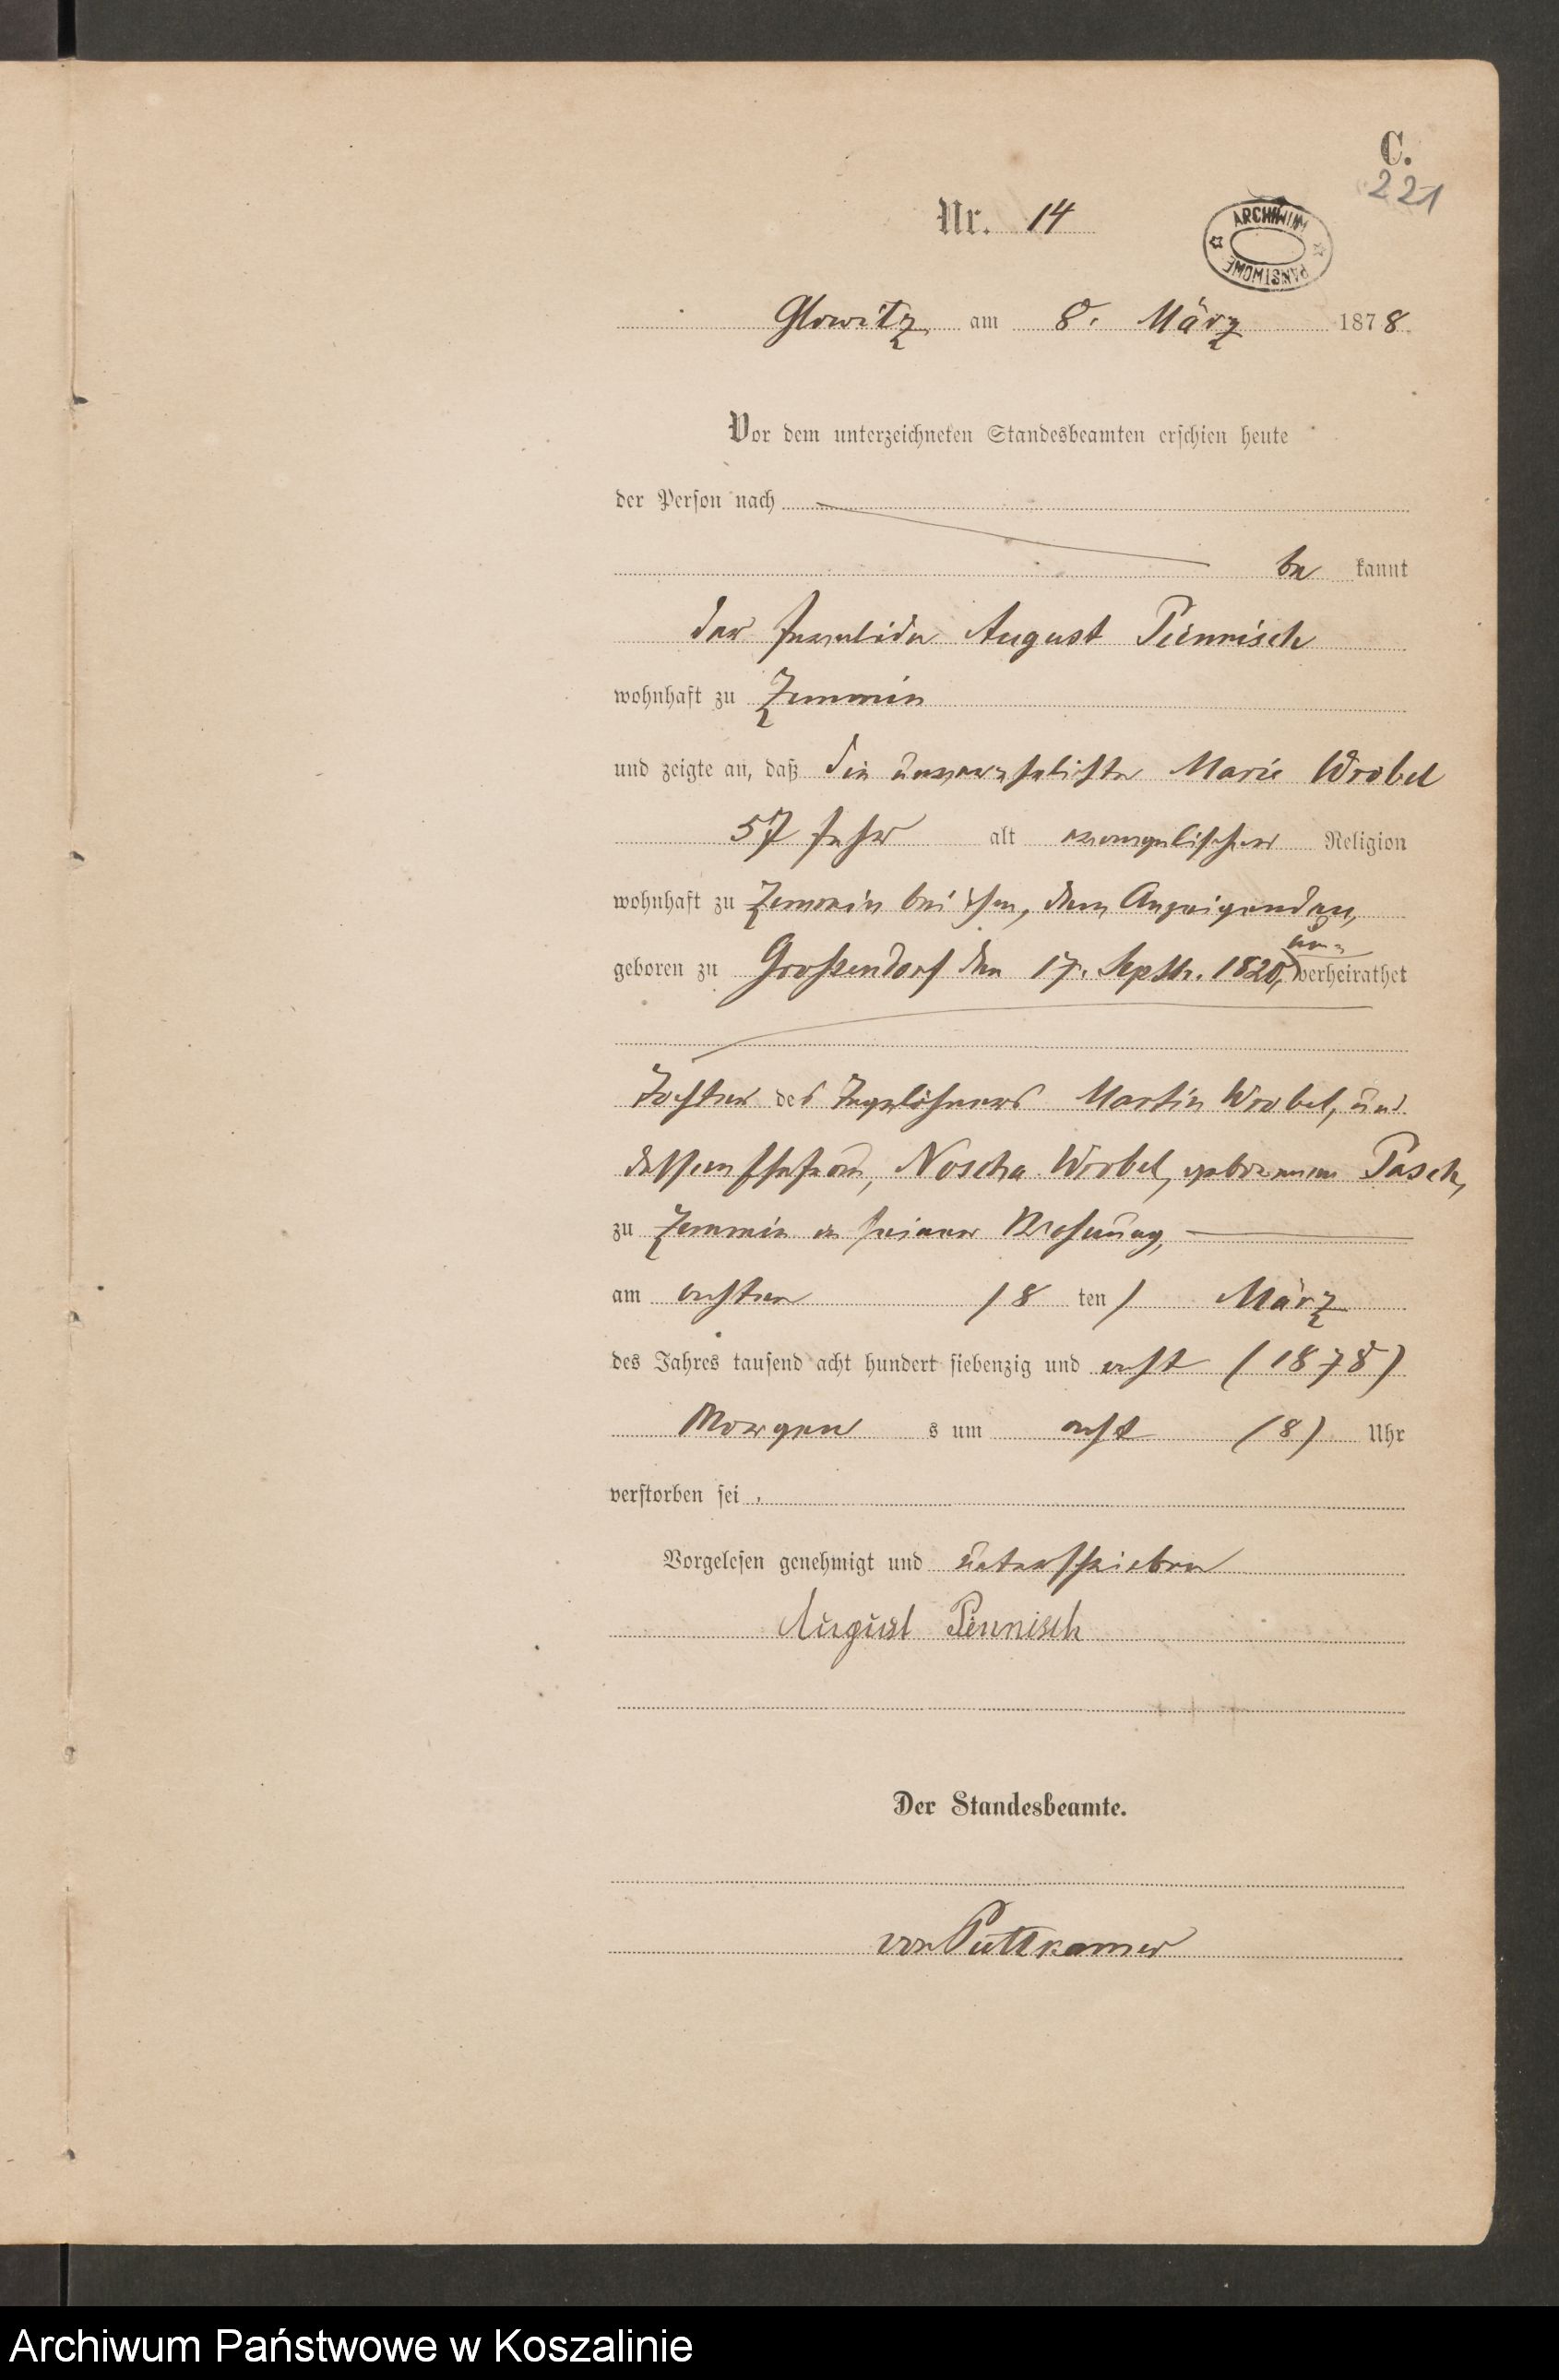 C.
221
Nr. 14
ARCHIWUM PAŃSTWOWE
Glowitz, am 8. März 1878.
Vor dem unterzeichneten Standesbeamten erschien heute
der Person nach
be kannt
der Invalide August Piennisch
wohnhaft zu Zemmin
und zeigte an, daß die unverehelichte Marie Wrobel
57 Jahr alt evangelischer Religion
wohnhaft zu Zemmin bei ihm, dem Anzeigenden,
geboren zu Großendorf den 17. Septbr. 1820, un- verheirathet
Tochter des Tagelöhners Martin Wrobel, und
dessen Ehefrau, Noscha Wrobel, geborenen Pasch,
zu Zemmin in seiner Wohnung,
am achten (8 ten) März
des Jahres tausend acht hundert siebenzig und acht (1878)
Morgen s um acht (8) Uhr
verstorben sei.
Vorgelesen genehmigt und unterschrieben
August Piennisch
Der Standesbeamte.
von Puttkamer
Archiwum Państwowe w Koszalinie